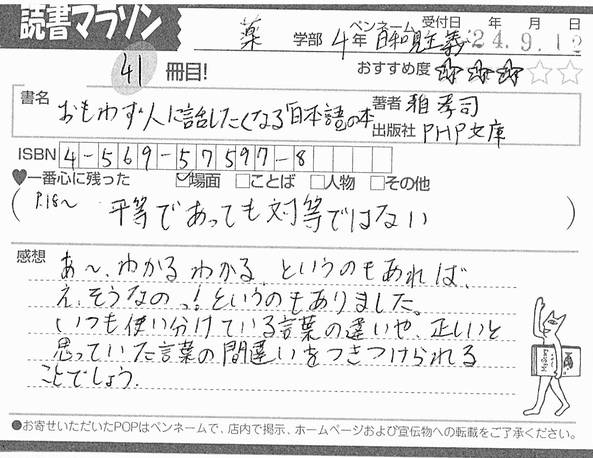 読書マラソン
薬 学部 4年 ペンネーム 日和見主義 受付日 年 月 日
24.9.12
41 冊目!
おすすめ度 ☆☆☆☆☆
書名 おもわず人に話したくなる「日本語」の本
著者 雅 孝司
出版社 PHP文庫
ISBN 4-569-57597-8
♥一番心に残った ☑場面 □ことば □人物 □その他
(P.18〜 平等であっても対等ではない)
感想
あ〜、わかるわかる、というのもあれば、
え、そうなのっ!というのもありました。
いつも使い分けている言葉の違いや、正しいと
思っていた言葉の間違いをつきつけられる
ことでしょう。
●お寄せいただいたPOPはペンネームで、店内で掲示、ホームページおよび宣伝物への転載をご了承ください。